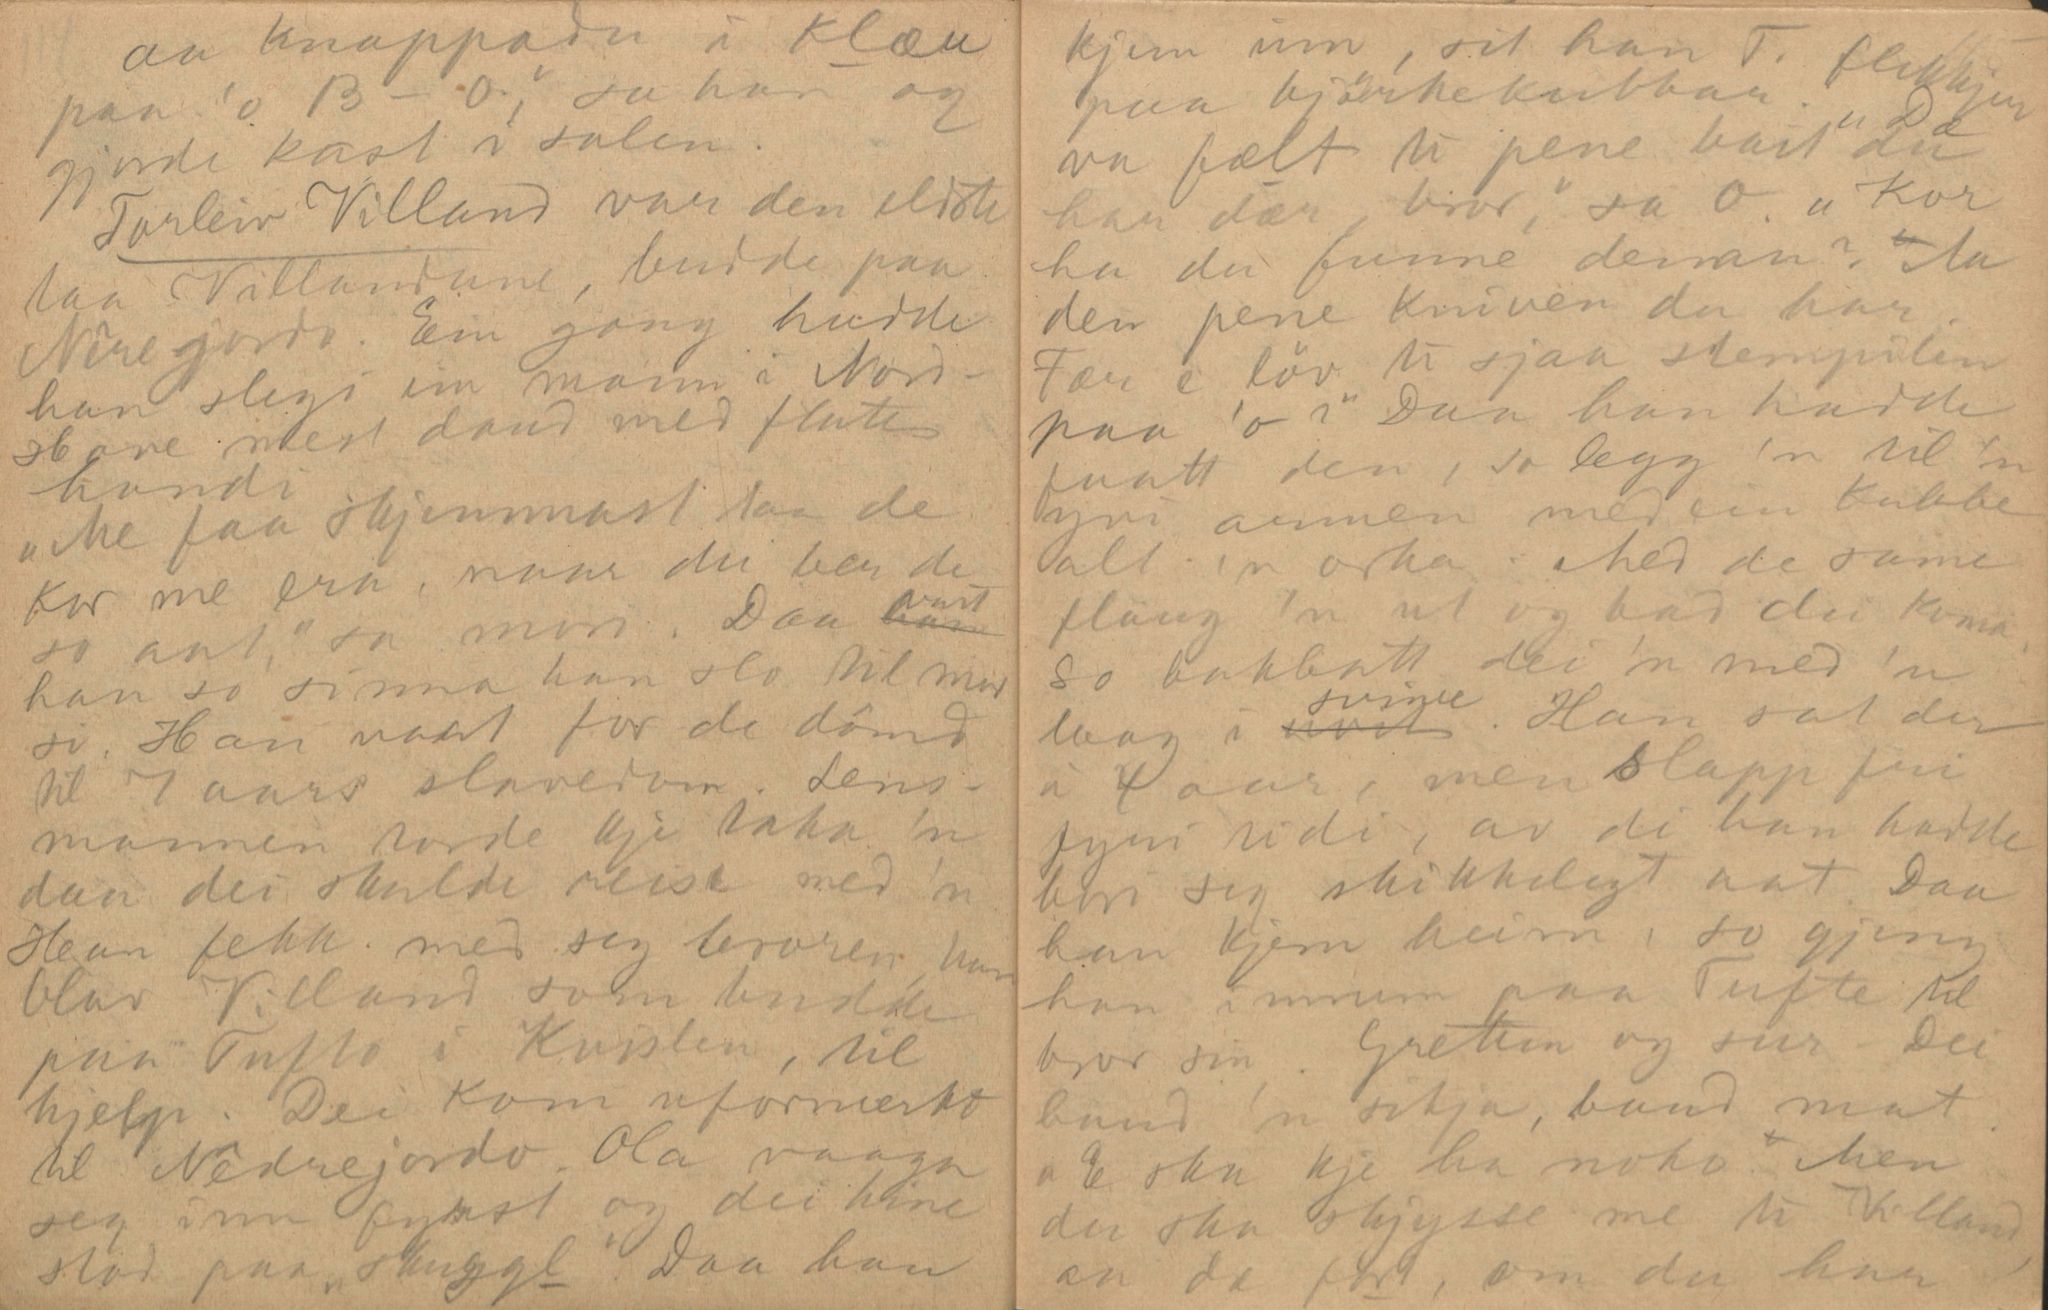 aa knappadn i Klæu
paa 'o B – O," sa han og
gjorde kast i salen.
Torleiv Villand var den eldste
taa Villandane, budde paa
Niregjordo. Ein gong hadde
han slegi ein mann i Nord-
stane mest daud med flate
handi
"Me faa skjemmast taa de
kor me era, naar du ber de
so aat," sa mori. Daa vart
han so sinna han slo til mor
si. Han vart for de dömd
til 7 aars slavedom. Lens-
mannen torde kje taka 'n
daa dei skulde reise med 'n
Han fekk med seg broren, han
Olav Villand som budde
paa Tufto i Kvislen, til
hjelp. Dei kom uformerkt
til Nedrejordo. Ola vaaga
seg inn fyrst og dei hine
stod paa "skuggl". Daa han
kjem inn, sit han T.
paa björkekubbar. "Dæ
va fælt ti pene bait du
har dær, bror," sa O. "Kor
ha du funne denan?" "Aa
den pene kniven du har.
Fær e löv ti sjaa stempilen
paa 'o?" Daa han hadde
faatt den, so legg 'n til 'n
yvi armen med ein kubbe
alt 'n orka. Med de same
flaug 'n ut og bad dei koma.
So bakbatt dei 'n med 'n
laag i svime. Han sat der
i 4 aar, men slapp fri
fyri tidi, av di han hadde
bori seg skikkelegt aat. Daa
han kjem heim, so gjeng
han innum paa Tufte til
bror sin. Gretten og sur. Dei
baud 'n sitja, baud mat.
"E ska kje ha noko." Men
du ska skjysse me ti Villand,
aa dæ fort, om du har